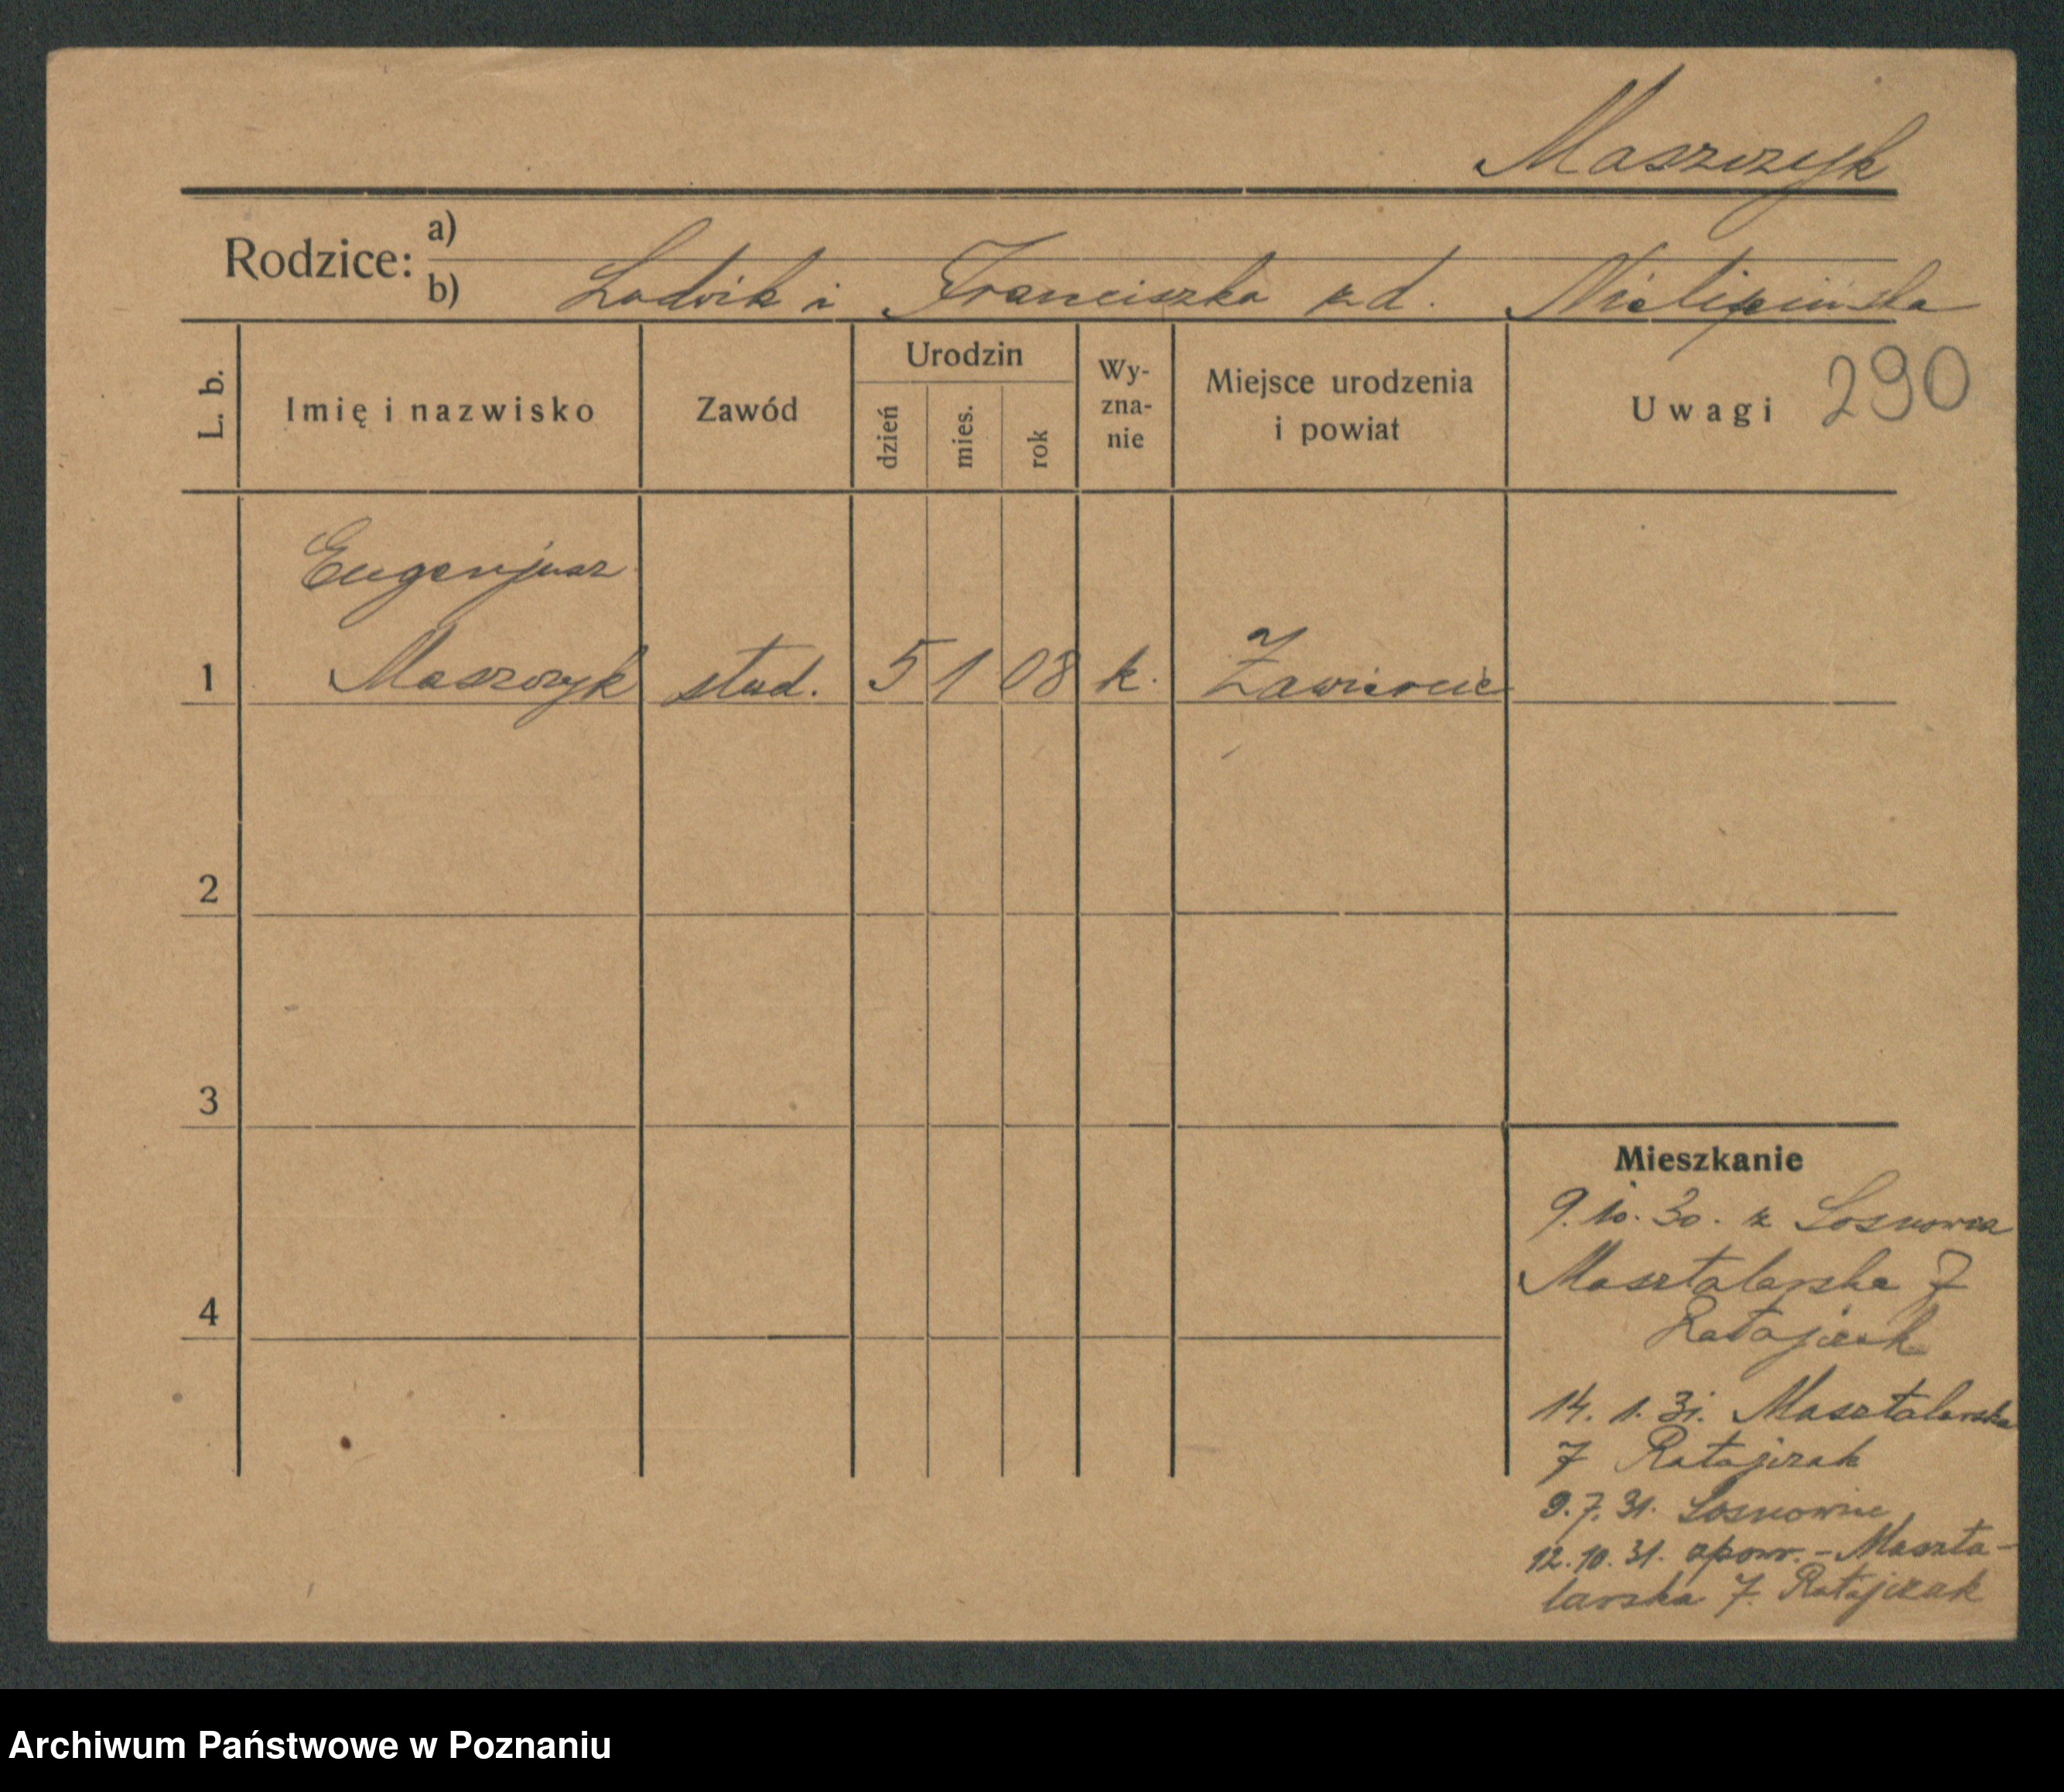 Maszczyk
Rodzice: a)
b) Ludwik i Franciszka z d.
L. b. Imię i nazwisko Zawód Urodzin dzień mies. rok Wy-zna-nie Miejsce urodzenia i powiat Uwagi 290
Eugenjusz
1 Maszczyk stud. 5 1 08 k. Zawiercie
2
3
Mieszkanie
9. 10. 30. z Sosnowca
Masztalarska 7
4
Ratajczak
14. 1. 31. Masztalarska
7 Ratajczak
9. 7. 31. Sosnowiec
12. 10. 31. spowr. - Maszta-
larska 7. Ratajczak
Archiwum Państwowe w Poznaniu